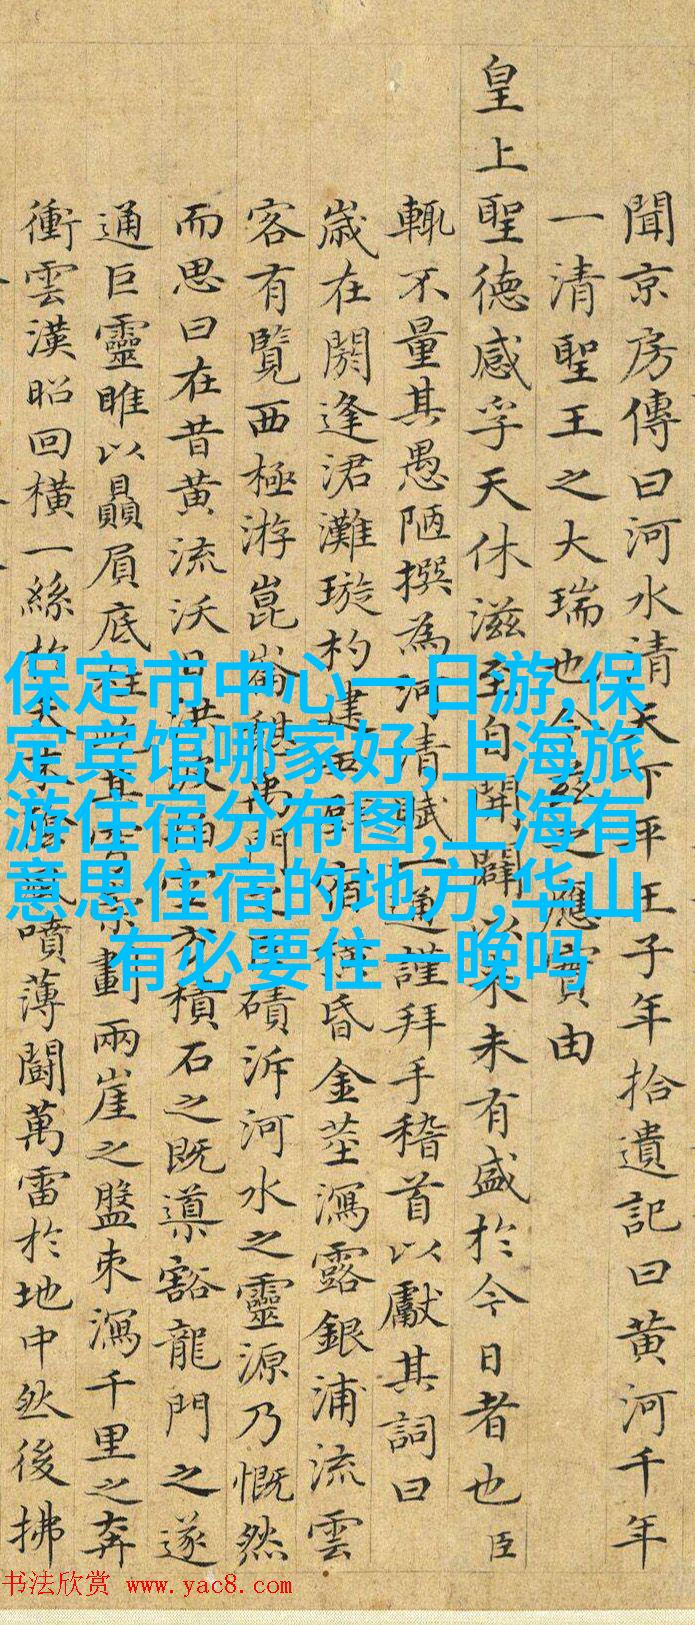 聞京房傳曰河水清天下平王子年拾遺記曰黃河千年
一清聖王之大瑞也今茲之應實由
皇上聖德感孚天休滋至自開闢以來未有盛於今日者也臣
輒不量其愚陋撰為河清賦一通謹拜手稽首以獻其詞曰
歲在閼逢涒灘璇杓建宿昏金莖瀉露銀浦流雲
客有覽西極游崑崙禹門之西磧泝河水之靈源乃慨然
而思曰在昔黃流沃日洪波拍空方積石之既導豁龍門之遂
通巨靈雎以贔屓底柱劃兩崖之盤束瀉千里之奔
衝雲漢昭回橫一絲於天末噴薄鬭萬雷於地中然後拂
保定市中心一日游,保
定宾馆哪家好,上海旅
游住宿分布图,上海有
意思住宿的地方,华山
有必要住一晚吗
书法欣赏 www.yac8.com